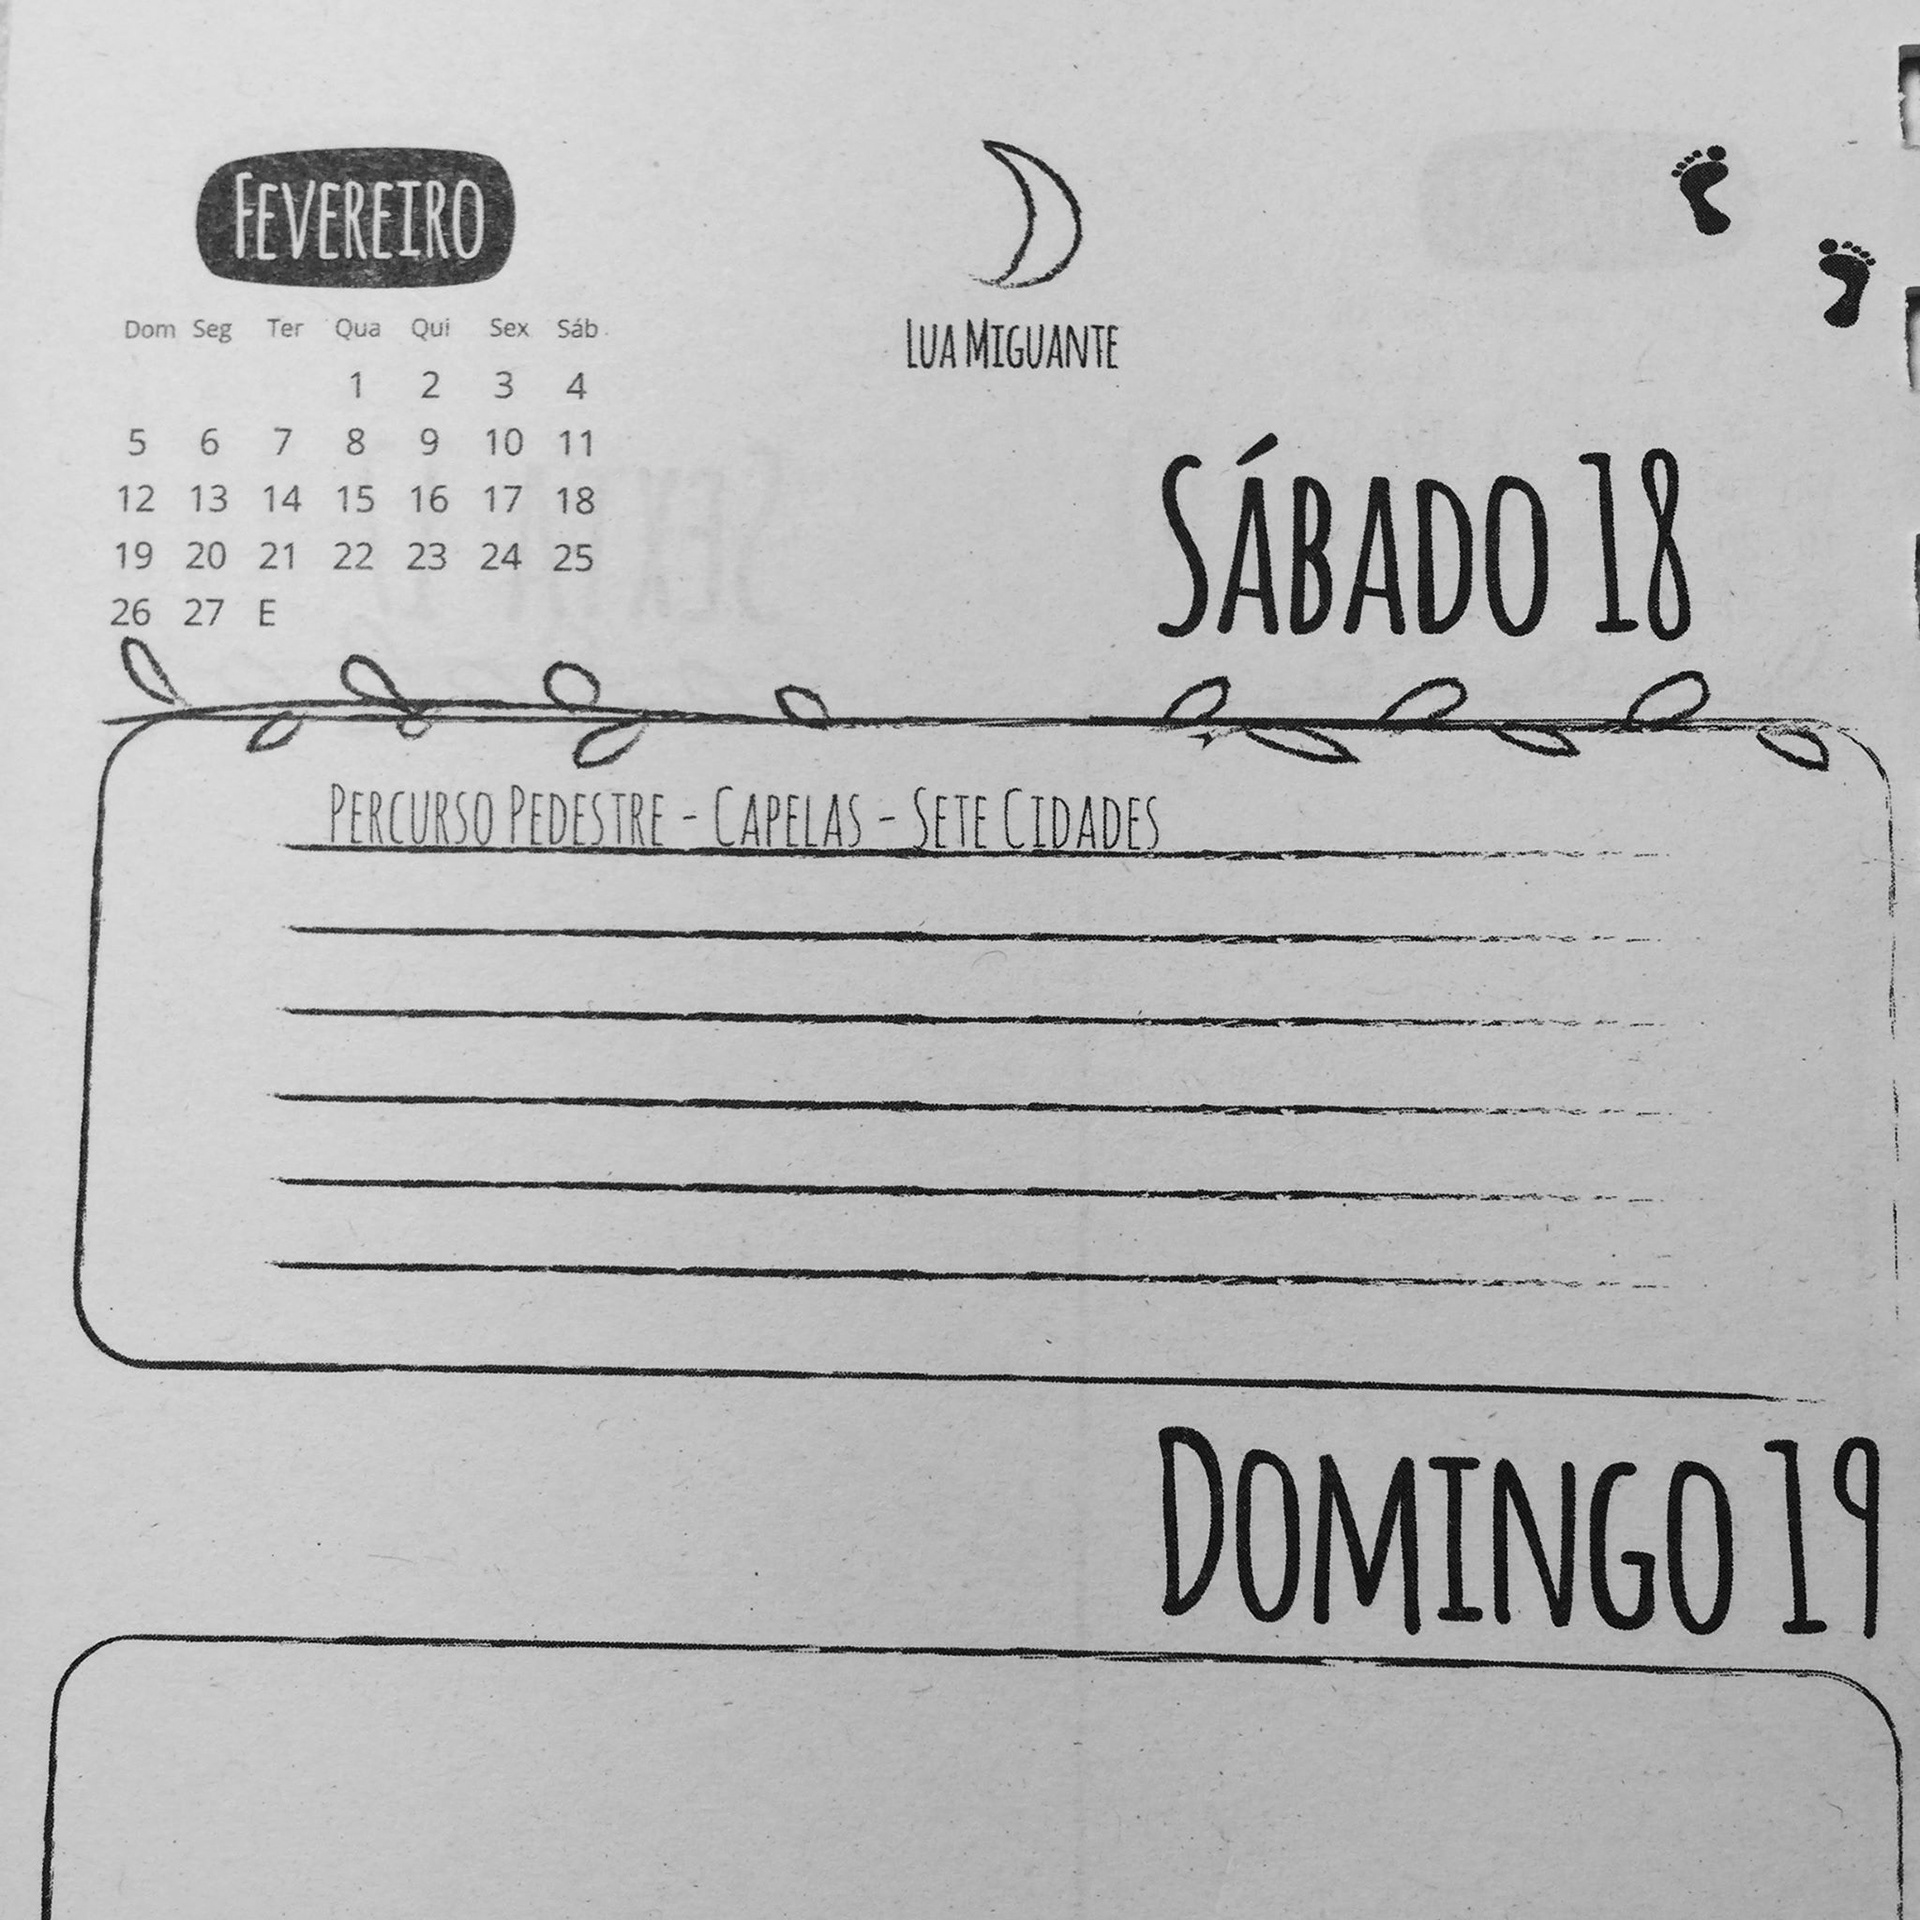 FEVEREIRO
Dom Seg Ter Qua Qui Sex Sáb
1 2 3 4
5 6 7 8 9 10 11
12 13 14 15 16 17 18
19 20 21 22 23 24 25
26 27 E
LUA MIGUANTE
SÁBADO 18
PERCURSO PEDESTRE - CAPELAS - SETE CIDADES
DOMINGO 19